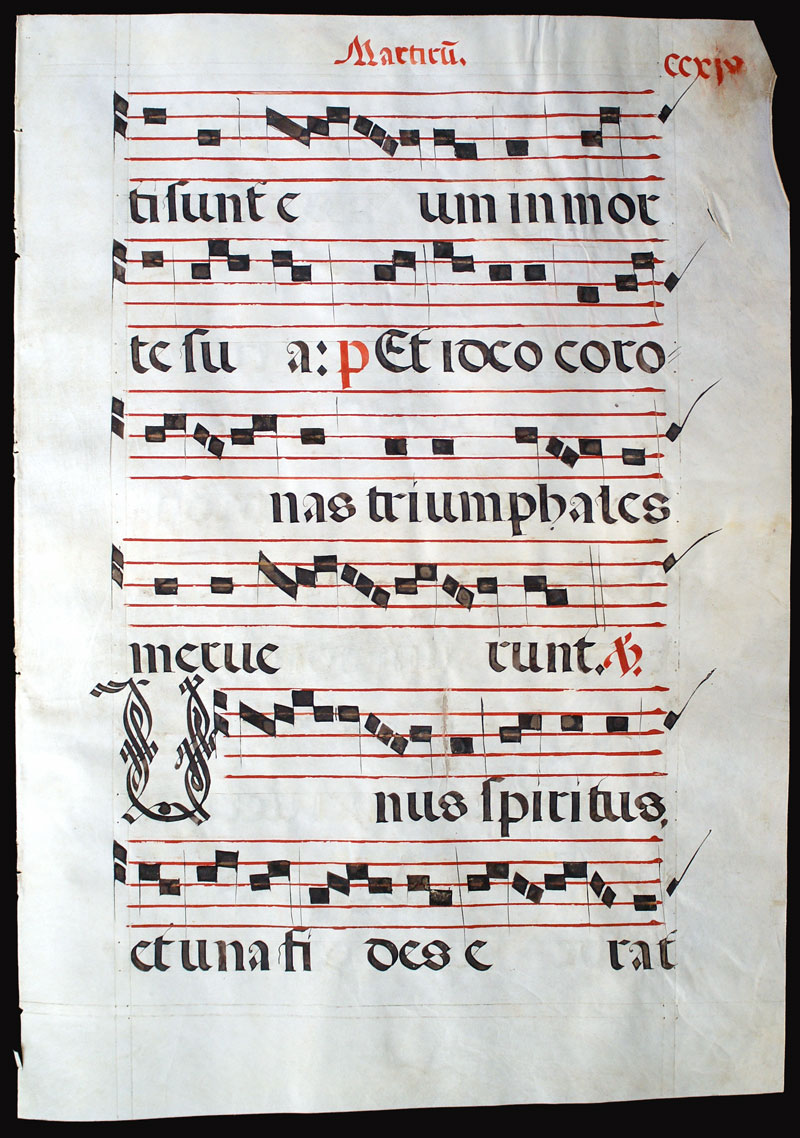 Martirū.
CCXIV
ti sunt e um in mor
te su a: p Et ideo coro
nas triumphales
merue runt. ℣.
Unus spiritus,
et una fi des e rat